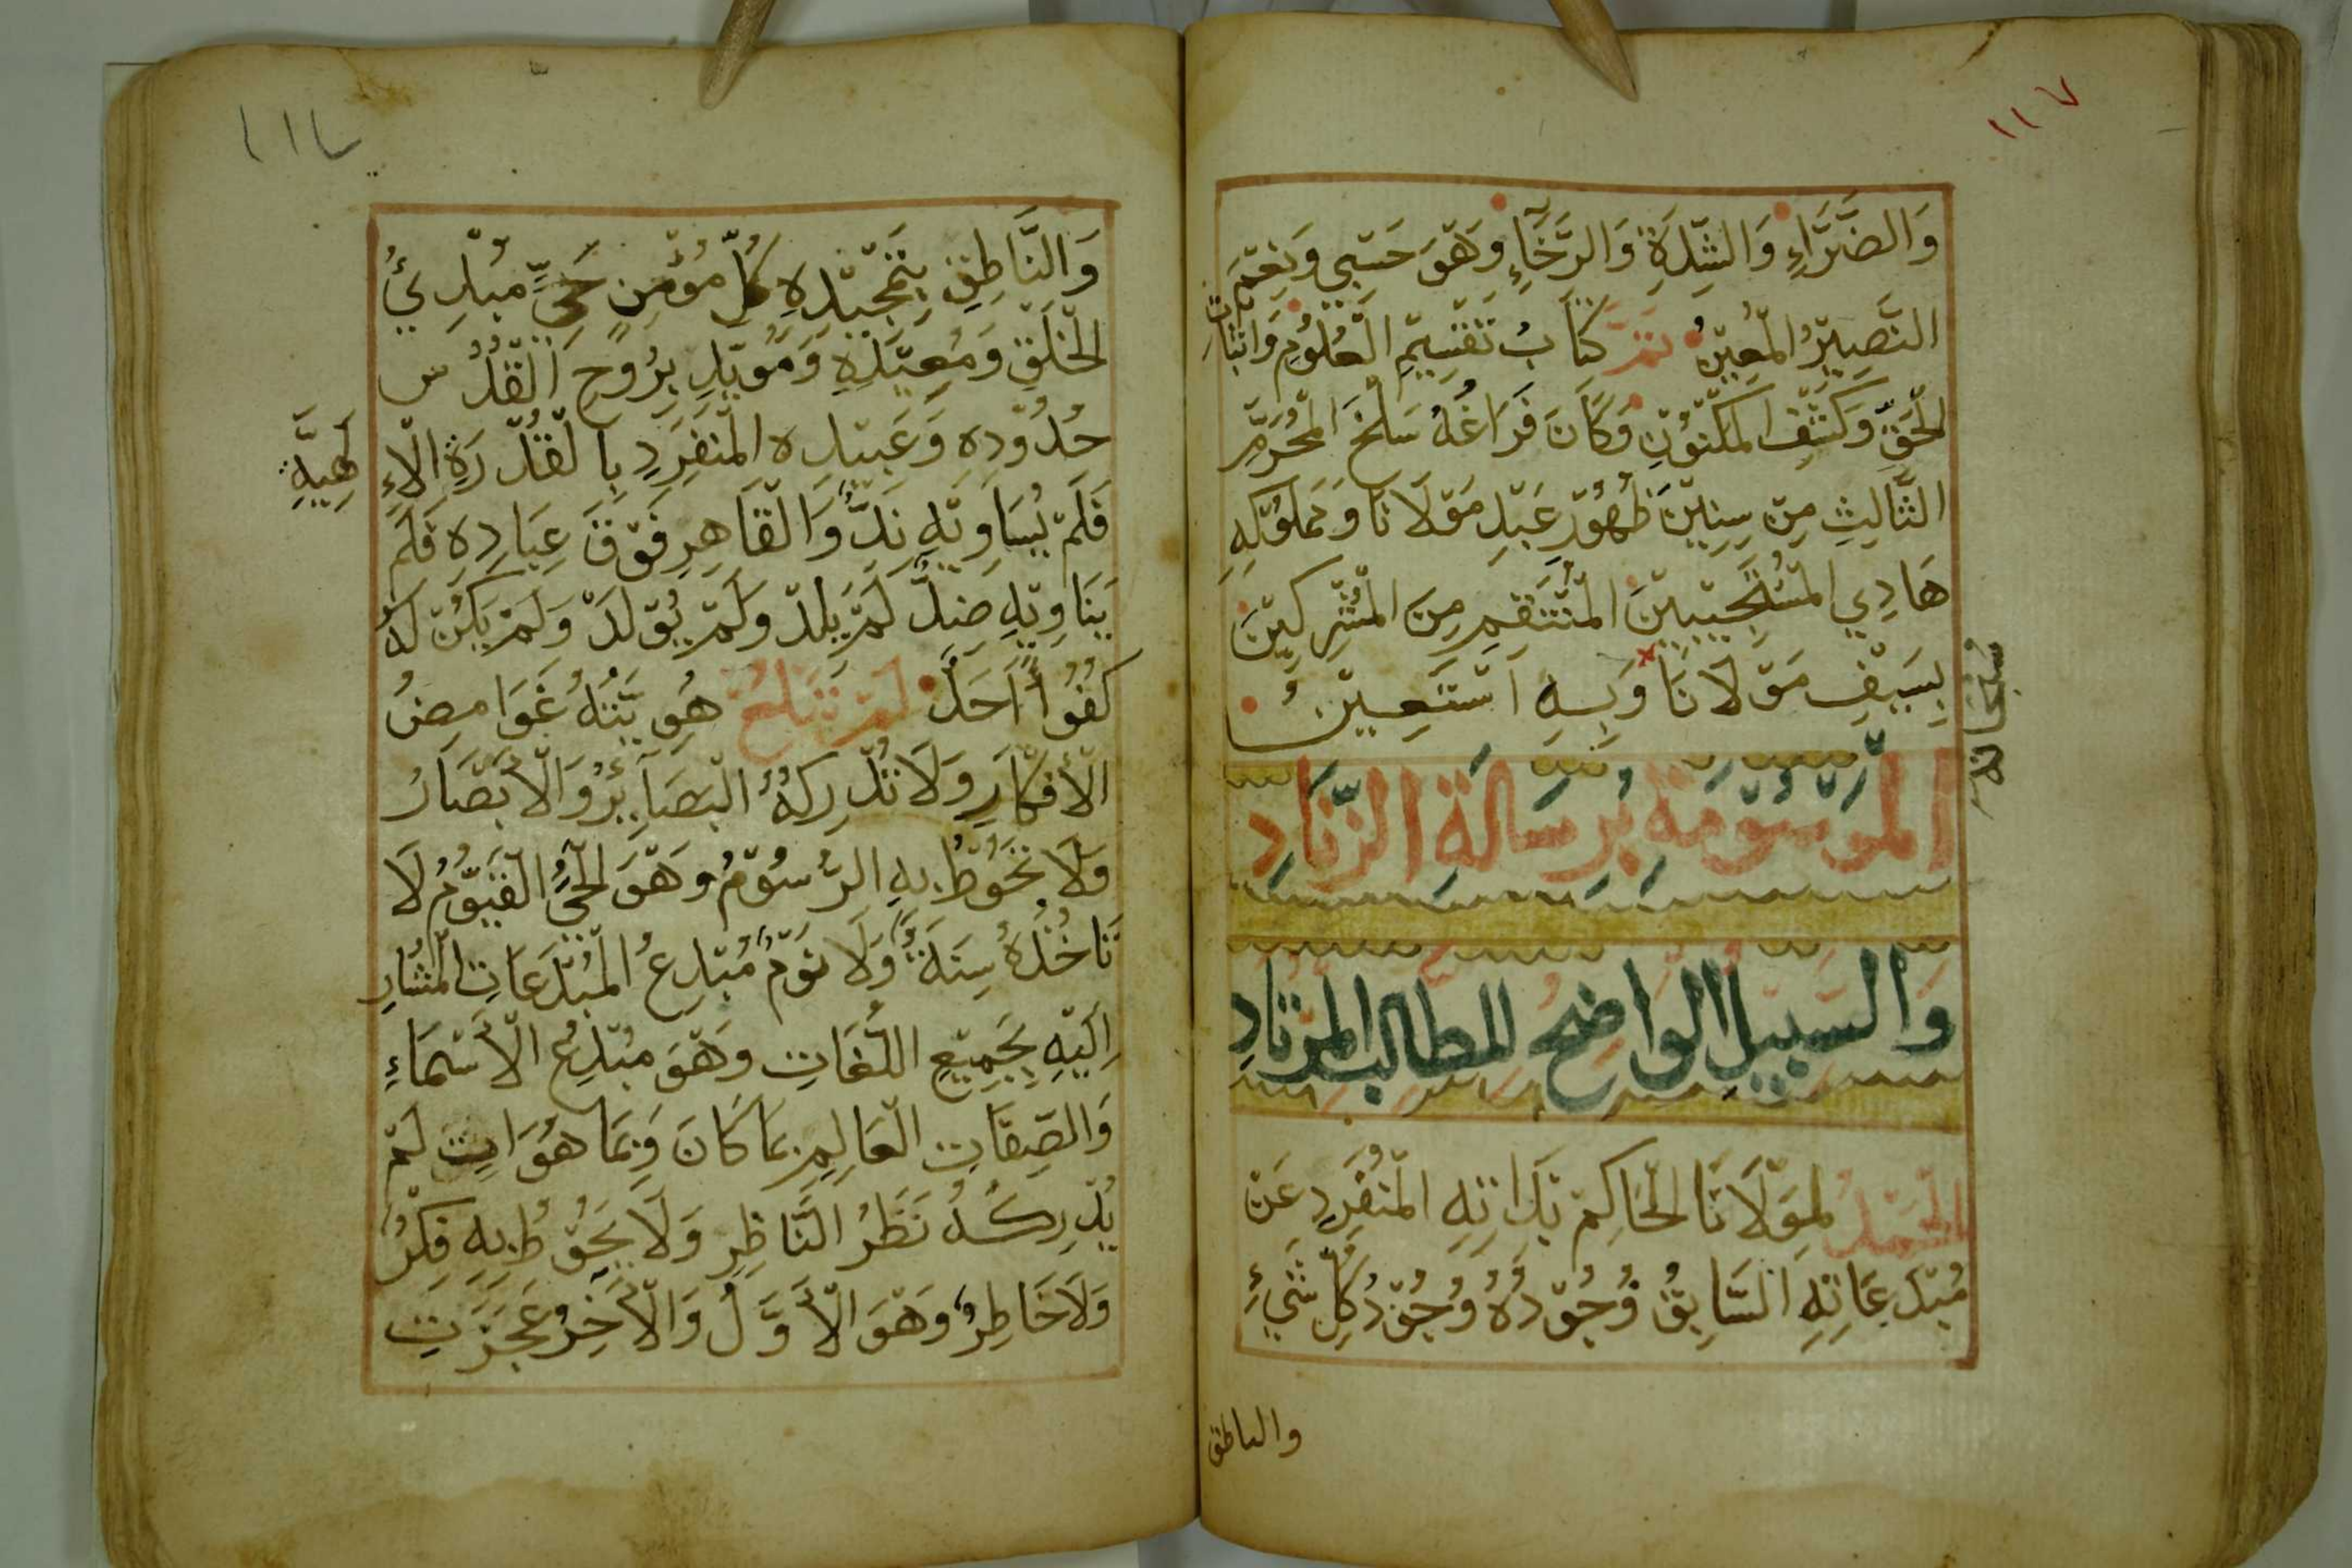 ١١٧
وَالضَّرَّاءِ وَالشِّدَةِ وَالرَّخَآءِ وَهْوَ حَسْبِي وَنِعْمَ
النَّصِيْرُ الْمُعِيْنُ تَمَّ كِتَابُ تَقْسِيْمِ الْعُلُوْمِ وَاثْبَاتِ
الْحَقِّ وَكَشْفِ الْمَكْنُوْنِ وَكَانَ فَرَاغُهُ سَلْخَ الْمُحَرَّمِ
الثَّالِثِ مِنْ سِنِيْنَ ظُهُوْرِ عَبْدِ مَوْلَانَا وَمَمْلُوْكِهِ
هَادِي الْمُسْتَجِيْبِيْنَ الْمُنْتَقِمِ مِنَ الْمُشْرِكِيْنَ
بِسَيْفِ مَوْلَانَا وَبِهِ اَسْتَعِيْنُ
سُبْحَانَهُ
الْمَوْسُوْمَةُ بِرِسَالَةِ الزِّنَادِ
وَالسَّبِيْلُ الْوَاضِحُ لِلطَالِبِ الْمُرْتَادِ
الْحَمْدُ لِمَوْلَانَا الْحَاكِمْ بَذَاتِهِ الْمُنْفَرِدِ عَنْ
مُبْدَعَاتِهِ السَّابِقُ وُجُوْدُهُ وُجُوْدُ كُلِّ شَيْءٍ
والناطق
١١٨
وَالنَّاطِقِ بِتَمْجِيْدِهِ كُلِّ مُؤْمِنٍ حَيٍّ مُبْدِئُ
الْخَلْقِ وَمُعِيْدِهِ وَمُوَيِّدِ بِرُوْحِ الْقُدُسِ
حُدُوْدِهِ وَعَبِيْدِه الْمُنْفَرِدِ بِالْقُدْرَةِ الْاِلَهِيَّةِ
فَلَمْ يُسَاوِيْهِ نَدٌّ وَالْقَاهِرِ فَوْقَ عِبَادِهِ فَلَمْ
يَنَاوِيْهِ ضِدٌّ لَمْ يَلِدْ وَلَمْ يُوْلَدْ وَلَمْ يَكُنْ لَهُ
كُفُوًا اَحَدٌ لَمْ تَبْلُغْ هُوِيَّتُهُ غَوَامِضُ
الْأَفْكَارِ وَلَا تُدْرِكُهُ الْبَصَآئِرُ وَالْأَبْصَارُ
وَلَا تَحُوْطُ بِهِ الرُّسُوْمُ وَهْوَ الْحَيُّ الْقَيُّوْمُ لَا
تَاخُذُهُ سِنَةٌ وَلَا نَوْمٌ مُبْدِعُ الْمُبْدَعَاتِ الْمُشَارِ
اِلَيْهِ بِجَمِيْعِ اللُّغَاتِ وَهْوَ مُبْدِعُ الْأَسْمَاءِ
وَالصِّفَاتِ الْعَالِمِ بِمَا كَانَ وَبِمَا هُوَ اتٍ لَمْ
يُدْرِكْهُ نَظَرُ النَّاظِرِ وَلَا يَحُوْطُ بِهِ فِكْرٌ
وَلَا خَاطِرٌ وَهْوَ الْأَوَّلُ وَالْأَخِرُ عَجَزَتِ